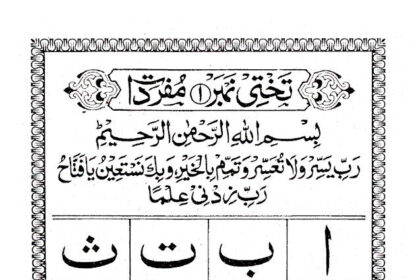 تختی نمبر ۱ مفردات
بِسْمِ اللهِ الرَّحْمٰنِ الرَّحِيْمِ
رَبِّ يَسِّرْ وَلَا تُعَسِّرْ وَتَمِّمْ بِالْخَيْرِ وَبِكَ نَسْتَعِيْنُ يَا فَتَّاحُ
رَبِّ زِدْنِيْ عِلْمًا
ا ب ت ث